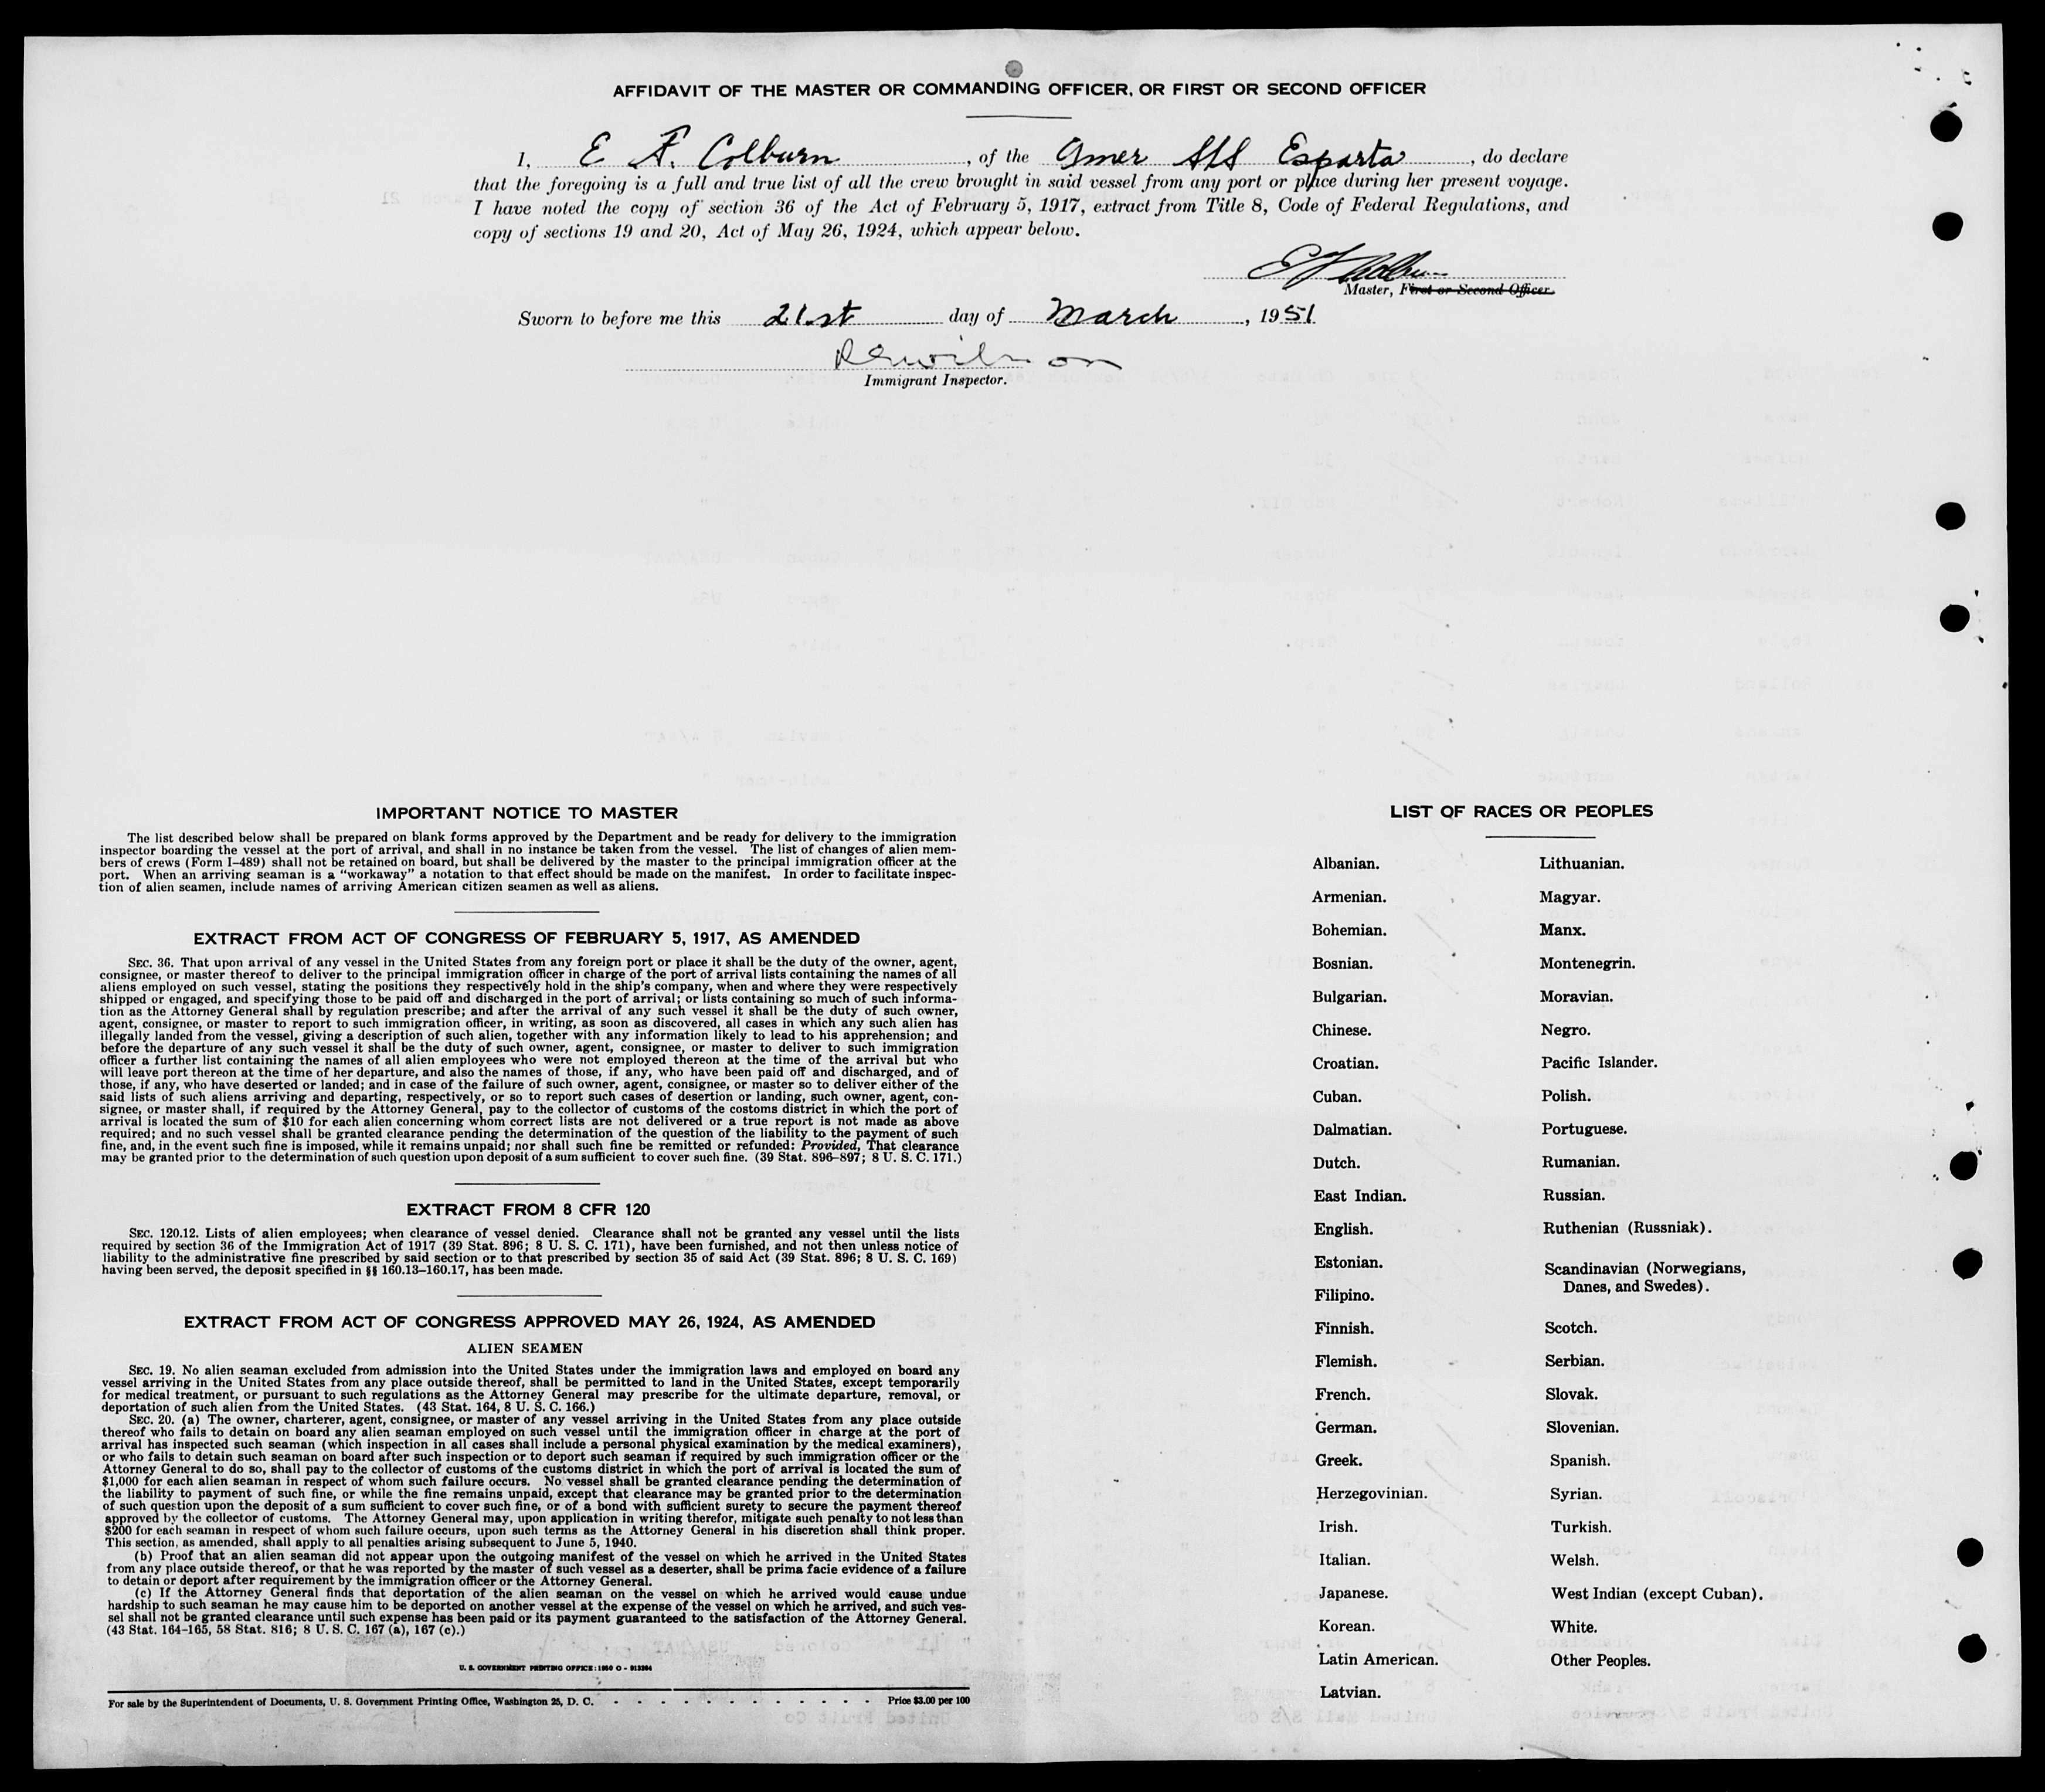 AFFIDAVIT OF THE MASTER OR COMMANDING OFFICER, OR FIRST OR SECOND OFFICER
I, E. F. Colburn, of the Amer SS Esparta, do declare
that the foregoing is a full and true list of all the crew brought in said vessel from any port or place during her present voyage.
I have noted the copy of section 36 of the Act of February 5, 1917, extract from Title 8, Code of Federal Regulations, and
copy of sections 19 and 20, Act of May 26, 1924, which appear below.
E F Colburn
Master, First or Second Officer.
Sworn to before me this 21st day of March, 1951
Immigrant Inspector.
IMPORTANT NOTICE TO MASTER
The list described below shall be prepared on blank forms approved by the Department and be ready for delivery to the immigration
inspector boarding the vessel at the port of arrival, and shall in no instance be taken from the vessel. The list of changes of alien mem-
bers of crews (Form I-489) shall not be retained on board, but shall be delivered by the master to the principal immigration officer at the
port. When an arriving seaman is a "workaway" a notation to that effect should be made on the manifest. In order to facilitate inspec-
tion of alien seamen, include names of arriving American citizen seamen as well as aliens.
EXTRACT FROM ACT OF CONGRESS OF FEBRUARY 5, 1917, AS AMENDED
SEC. 36. That upon arrival of any vessel in the United States from any foreign port or place it shall be the duty of the owner, agent,
consignee, or master thereof to deliver to the principal immigration officer in charge of the port of arrival lists containing the names of all
aliens employed on such vessel, stating the positions they respectively hold in the ship's company, when and where they were respectively
shipped or engaged, and specifying those to be paid off and discharged in the port of arrival; or lists containing so much of such informa-
tion as the Attorney General shall by regulation prescribe; and after the arrival of any such vessel it shall be the duty of such owner,
agent, consignee, or master to report to such immigration officer, in writing, as soon as discovered, all cases in which any such alien has
illegally landed from the vessel, giving a description of such alien, together with any information likely to lead to his apprehension; and
before the departure of any such vessel it shall be the duty of such owner, agent, consignee, or master to deliver to such immigration
officer a further list containing the names of all alien employees who were not employed thereon at the time of the arrival but who
will leave port thereon at the time of her departure, and also the names of those, if any, who have been paid off and discharged, and of
those, if any, who have deserted or landed; and in case of the failure of such owner, agent, consignee, or master so to deliver either of the
said lists of such aliens arriving and departing, respectively, or so to report such cases of desertion or landing, such owner, agent, con-
signee, or master shall, if required by the Attorney General, pay to the collector of customs of the costoms district in which the port of
arrival is located the sum of $10 for each alien concerning whom correct lists are not delivered or a true report is not made as above
required; and no such vessel shall be granted clearance pending the determination of the question of the liability to the payment of such
fine, and, in the event such fine is imposed, while it remains unpaid; nor shall such fine be remitted or refunded: Provided, That clearance
may be granted prior to the determination of such question upon deposit of a sum sufficient to cover such fine. (39 Stat. 896-897; 8 U. S. C. 171.)
EXTRACT FROM 8 CFR 120
SEC. 120.12. Lists of alien employees; when clearance of vessel denied. Clearance shall not be granted any vessel until the lists
required by section 36 of the Immigration Act of 1917 (39 Stat. 896; 8 U. S. C. 171), have been furnished, and not then unless notice of
liability to the administrative fine prescribed by said section or to that prescribed by section 35 of said Act (39 Stat. 896; 8 U. S. C. 169)
having been served, the deposit specified in §§ 160.13-160.17, has been made.
EXTRACT FROM ACT OF CONGRESS APPROVED MAY 26, 1924, AS AMENDED
ALIEN SEAMEN
SEC. 19. No alien seaman excluded from admission into the United States under the immigration laws and employed on board any
vessel arriving in the United States from any place outside thereof, shall be permitted to land in the United States, except temporarily
for medical treatment, or pursuant to such regulations as the Attorney General may prescribe for the ultimate departure, removal, or
deportation of such alien from the United States. (43 Stat. 164, 8 U. S. C. 166.)
SEC. 20. (a) The owner, charterer, agent, consignee, or master of any vessel arriving in the United States from any place outside
thereof who fails to detain on board any alien seaman employed on such vessel until the immigration officer in charge at the port of
arrival has inspected such seaman (which inspection in all cases shall include a personal physical examination by the medical examiners),
or who fails to detain such seaman on board after such inspection or to deport such seaman if required by such immigration officer or the
Attorney General to do so, shall pay to the collector of customs of the customs district in which the port of arrival is located the sum of
$1,000 for each alien seaman in respect of whom such failure occurs. No vessel shall be granted clearance pending the determination of
the liability to payment of such fine, or while the fine remains unpaid, except that clearance may be granted prior to the determination
of such question upon the deposit of a sum sufficient to cover such fine, or of a bond with sufficient surety to secure the payment thereof
approved by the collector of customs. The Attorney General may, upon application in writing therefor, mitigate such penalty to not less than
$200 for each seaman in respect of whom such failure occurs, upon such terms as the Attorney General in his discretion shall think proper.
This section, as amended, shall apply to all penalties arising subsequent to June 5, 1940.
(b) Proof that an alien seaman did not appear upon the outgoing manifest of the vessel on which he arrived in the United States
from any place outside thereof, or that he was reported by the master of such vessel as a deserter, shall be prima facie evidence of a failure
to detain or deport after requirement by the immigration officer or the Attorney General.
(c) If the Attorney General finds that deportation of the alien seaman on the vessel on which he arrived would cause undue
hardship to such seaman he may cause him to be deported on another vessel at the expense of the vessel on which he arrived, and such ves-
sel shall not be granted clearance until such expense has been paid or its payment guaranteed to the satisfaction of the Attorney General.
(43 Stat. 164-165, 58 Stat. 816; 8 U. S. C. 167 (a), 167 (c).)
U. S. GOVERNMENT PRINTING OFFICE: 1950 O - 913364
For sale by the Superintendent of Documents, U. S. Government Printing Office, Washington 25, D. C. - - - - - - - - - - - - Price $3.00 per 100
LIST OF RACES OR PEOPLES
Albanian.
Armenian.
Bohemian.
Bosnian.
Bulgarian.
Chinese.
Croatian.
Cuban.
Dalmatian.
Dutch.
East Indian.
English.
Estonian.
Filipino.
Finnish.
Flemish.
French.
German.
Greek.
Herzegovinian.
Irish.
Italian.
Japanese.
Korean.
Latin American.
Latvian.
Lithuanian.
Magyar.
Manx.
Montenegrin.
Moravian.
Negro.
Pacific Islander.
Polish.
Portuguese.
Rumanian.
Russian.
Ruthenian (Russniak).
Scandinavian (Norwegians,
Danes, and Swedes).
Scotch.
Serbian.
Slovak.
Slovenian.
Spanish.
Syrian.
Turkish.
Welsh.
West Indian (except Cuban).
White.
Other Peoples.